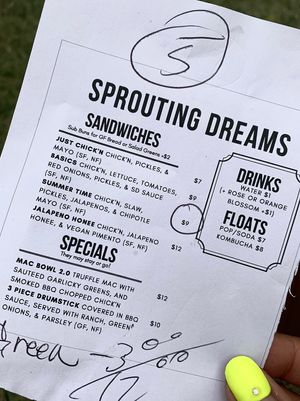 5
SPROUTING DREAMS
SANDWICHES
Sub Buns for GF Bread or Salad Greens +$2
JUST CHICK'N CHICK'N, PICKLES, &
MAYO (SF, NF) $7
BASICS CHICK'N, LETTUCE, TOMATOES,
RED ONIONS, PICKLES, & SD SAUCE
(SF, NF) $9
SUMMER TIME CHICK'N, SLAW,
PICKLES, JALAPENOS, & CHIPOTLE
MAYO (SF, NF) $9
JALAPENO HONEE CHICK'N, JALAPENO
HONEE, & VEGAN PIMENTO (SF, NF) $12
SPECIALS
They may stay or go!
MAC BOWL 2.0 TRUFFLE MAC WITH
SAUTEED GARLICKY GREENS, AND
SMOKED BBQ CHOPPED CHICK'N $12
3 PIECE DRUMSTICK COVERED IN BBQ
SAUCE, SERVED WITH RANCH, GREEN
ONIONS, & PARSLEY (GF, NF) $10
DRINKS
WATER $1
(+ ROSE OR ORANGE
BLOSSOM +$1)
FLOATS
POP/SODA $7
KOMBUCHA $8
Green -3
12